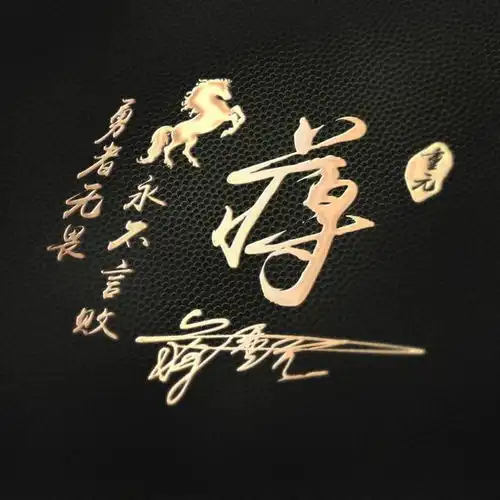 勇者无畏
永不言败
蒋
重元
蒋重元